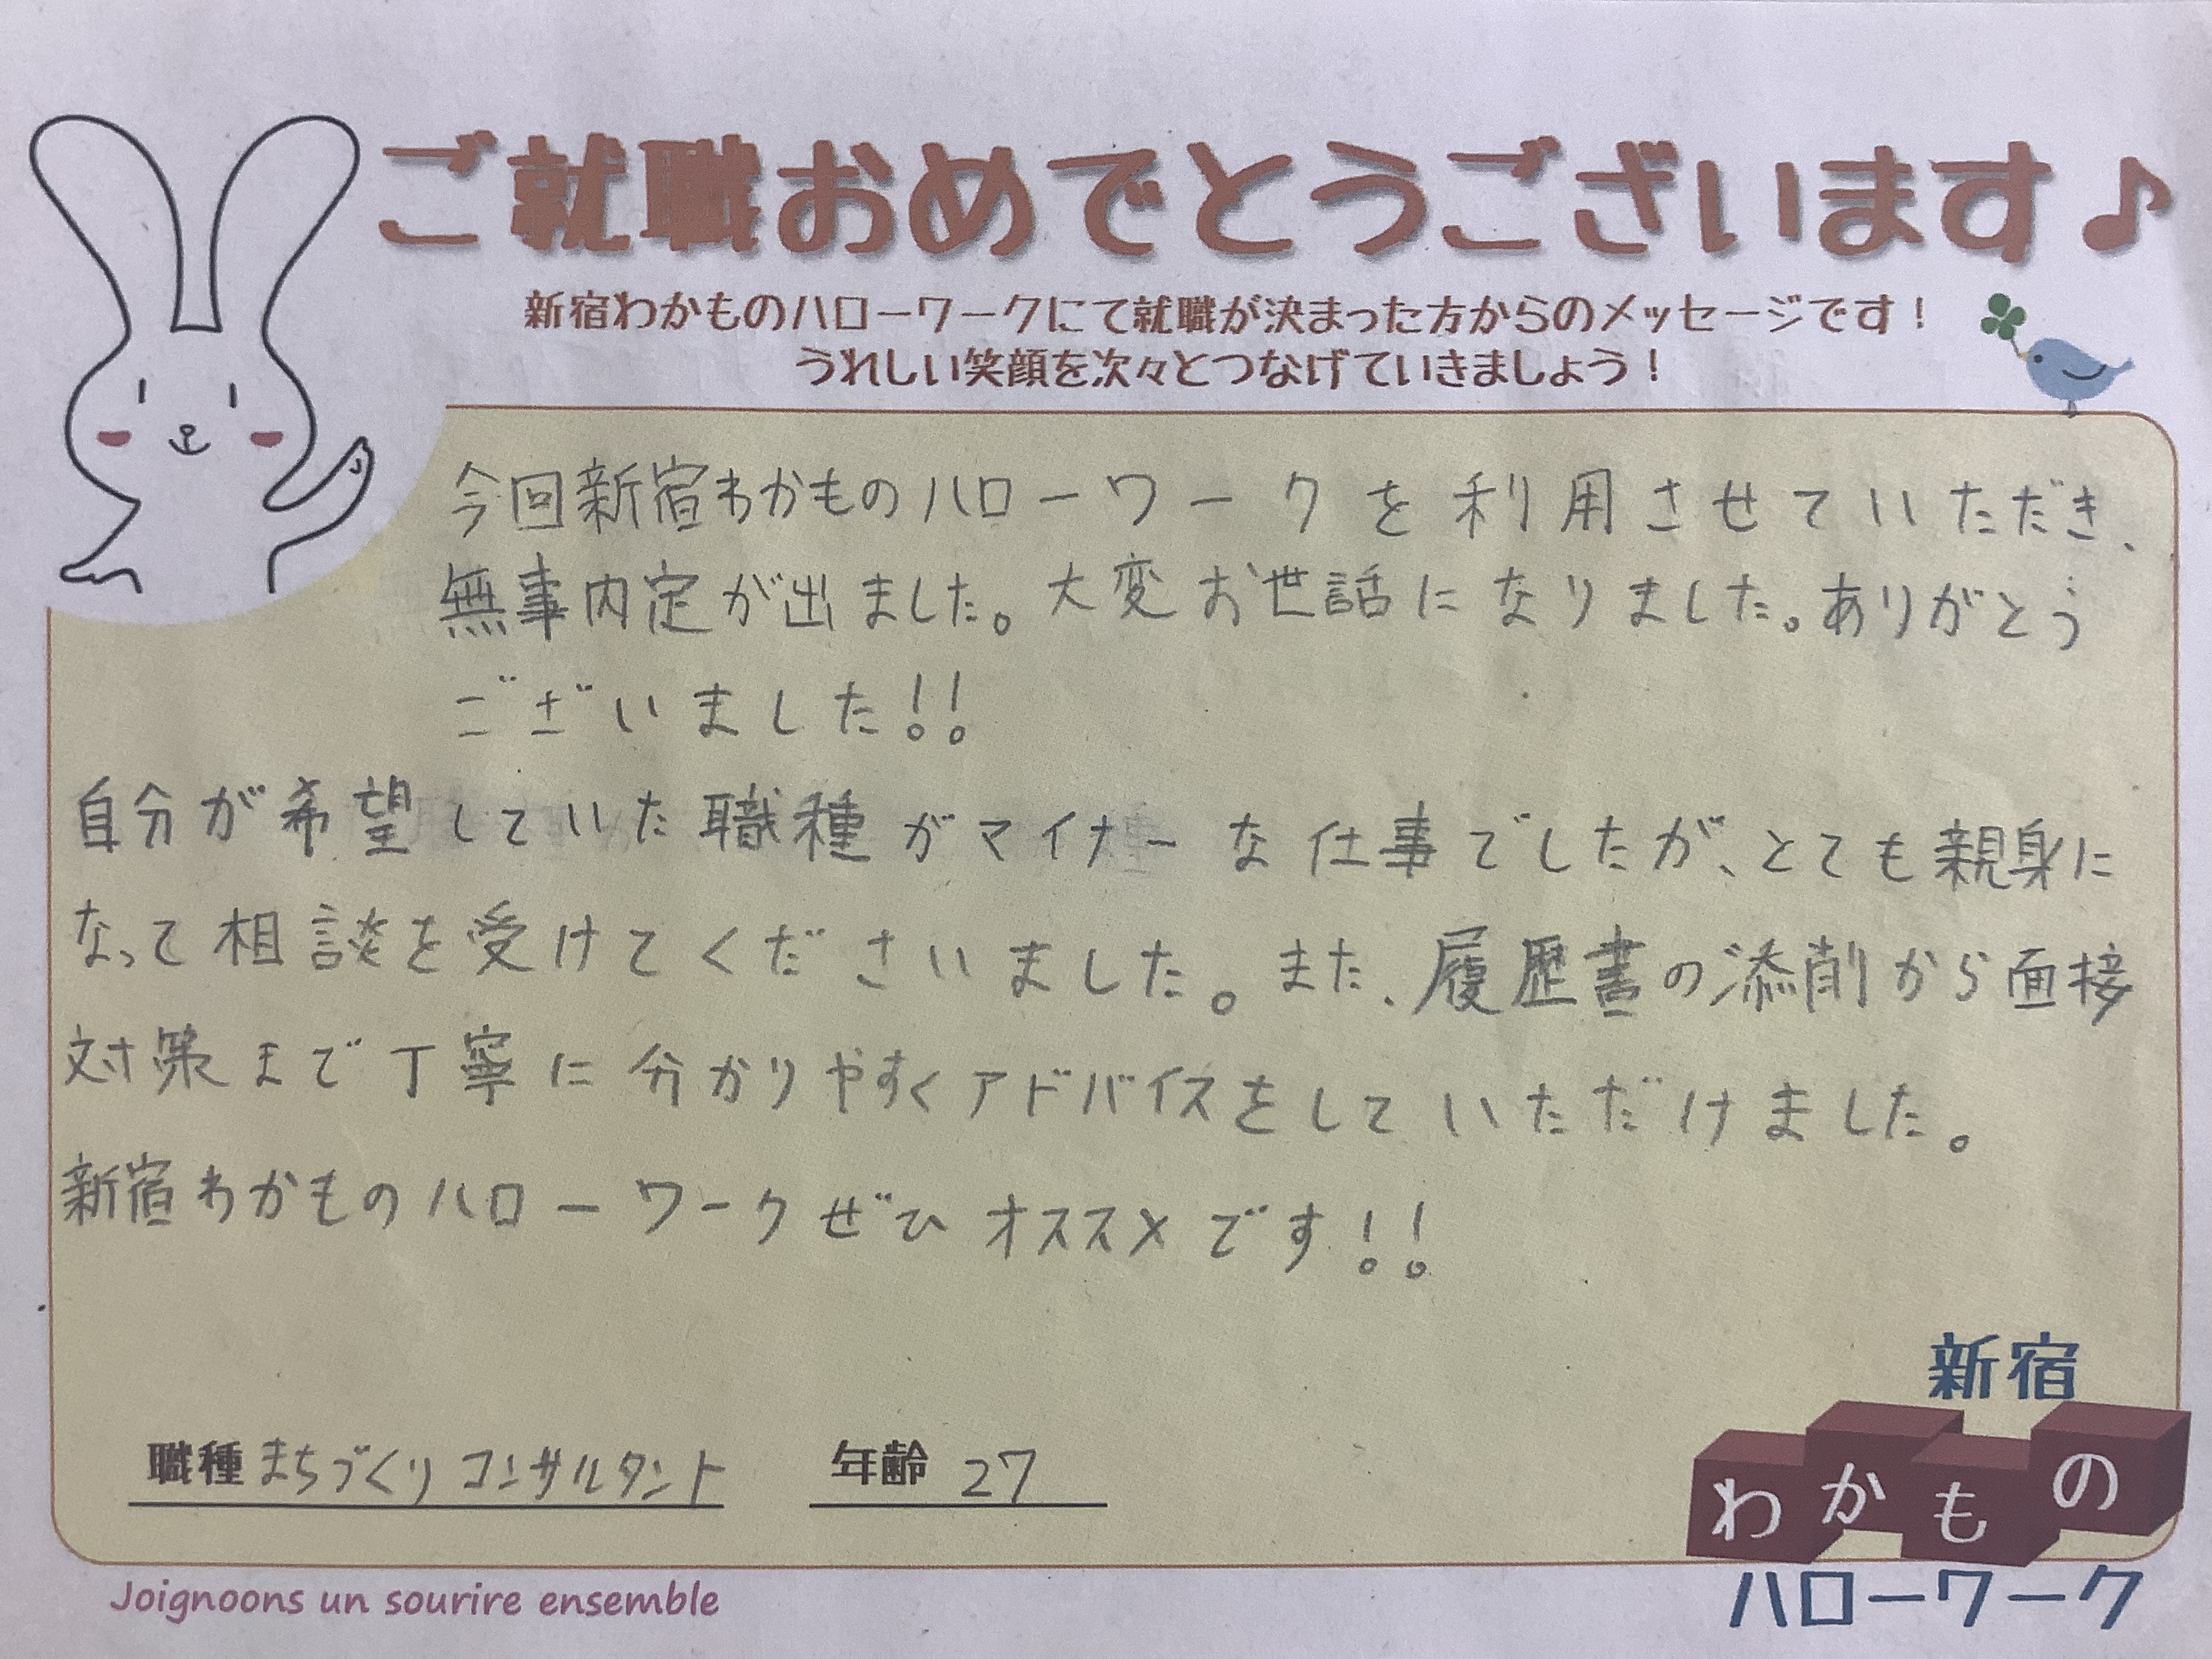 ご就職おめでとうございます♪
新宿わかものハローワークにて就職が決まった方からのメッセージです！
うれしい笑顔を次々とつなげていきましょう！
今回新宿わかものハローワークを利用させていただき、
無事内定が出ました。大変お世話になりました。ありがとう
ございました!!
自分が希望していた職種がマイナーな仕事でしたが、とても親身に
なって相談を受けてくださいました。また、履歴書の添削から面接
対策まで丁寧に分かりやすくアドバイスをしていただけました。
新宿わかものハローワークぜひオススメです!!
職種 まちづくりコンサルタント 年齢 27
新宿
わかもの
ハローワーク
Joignoons un sourire ensemble